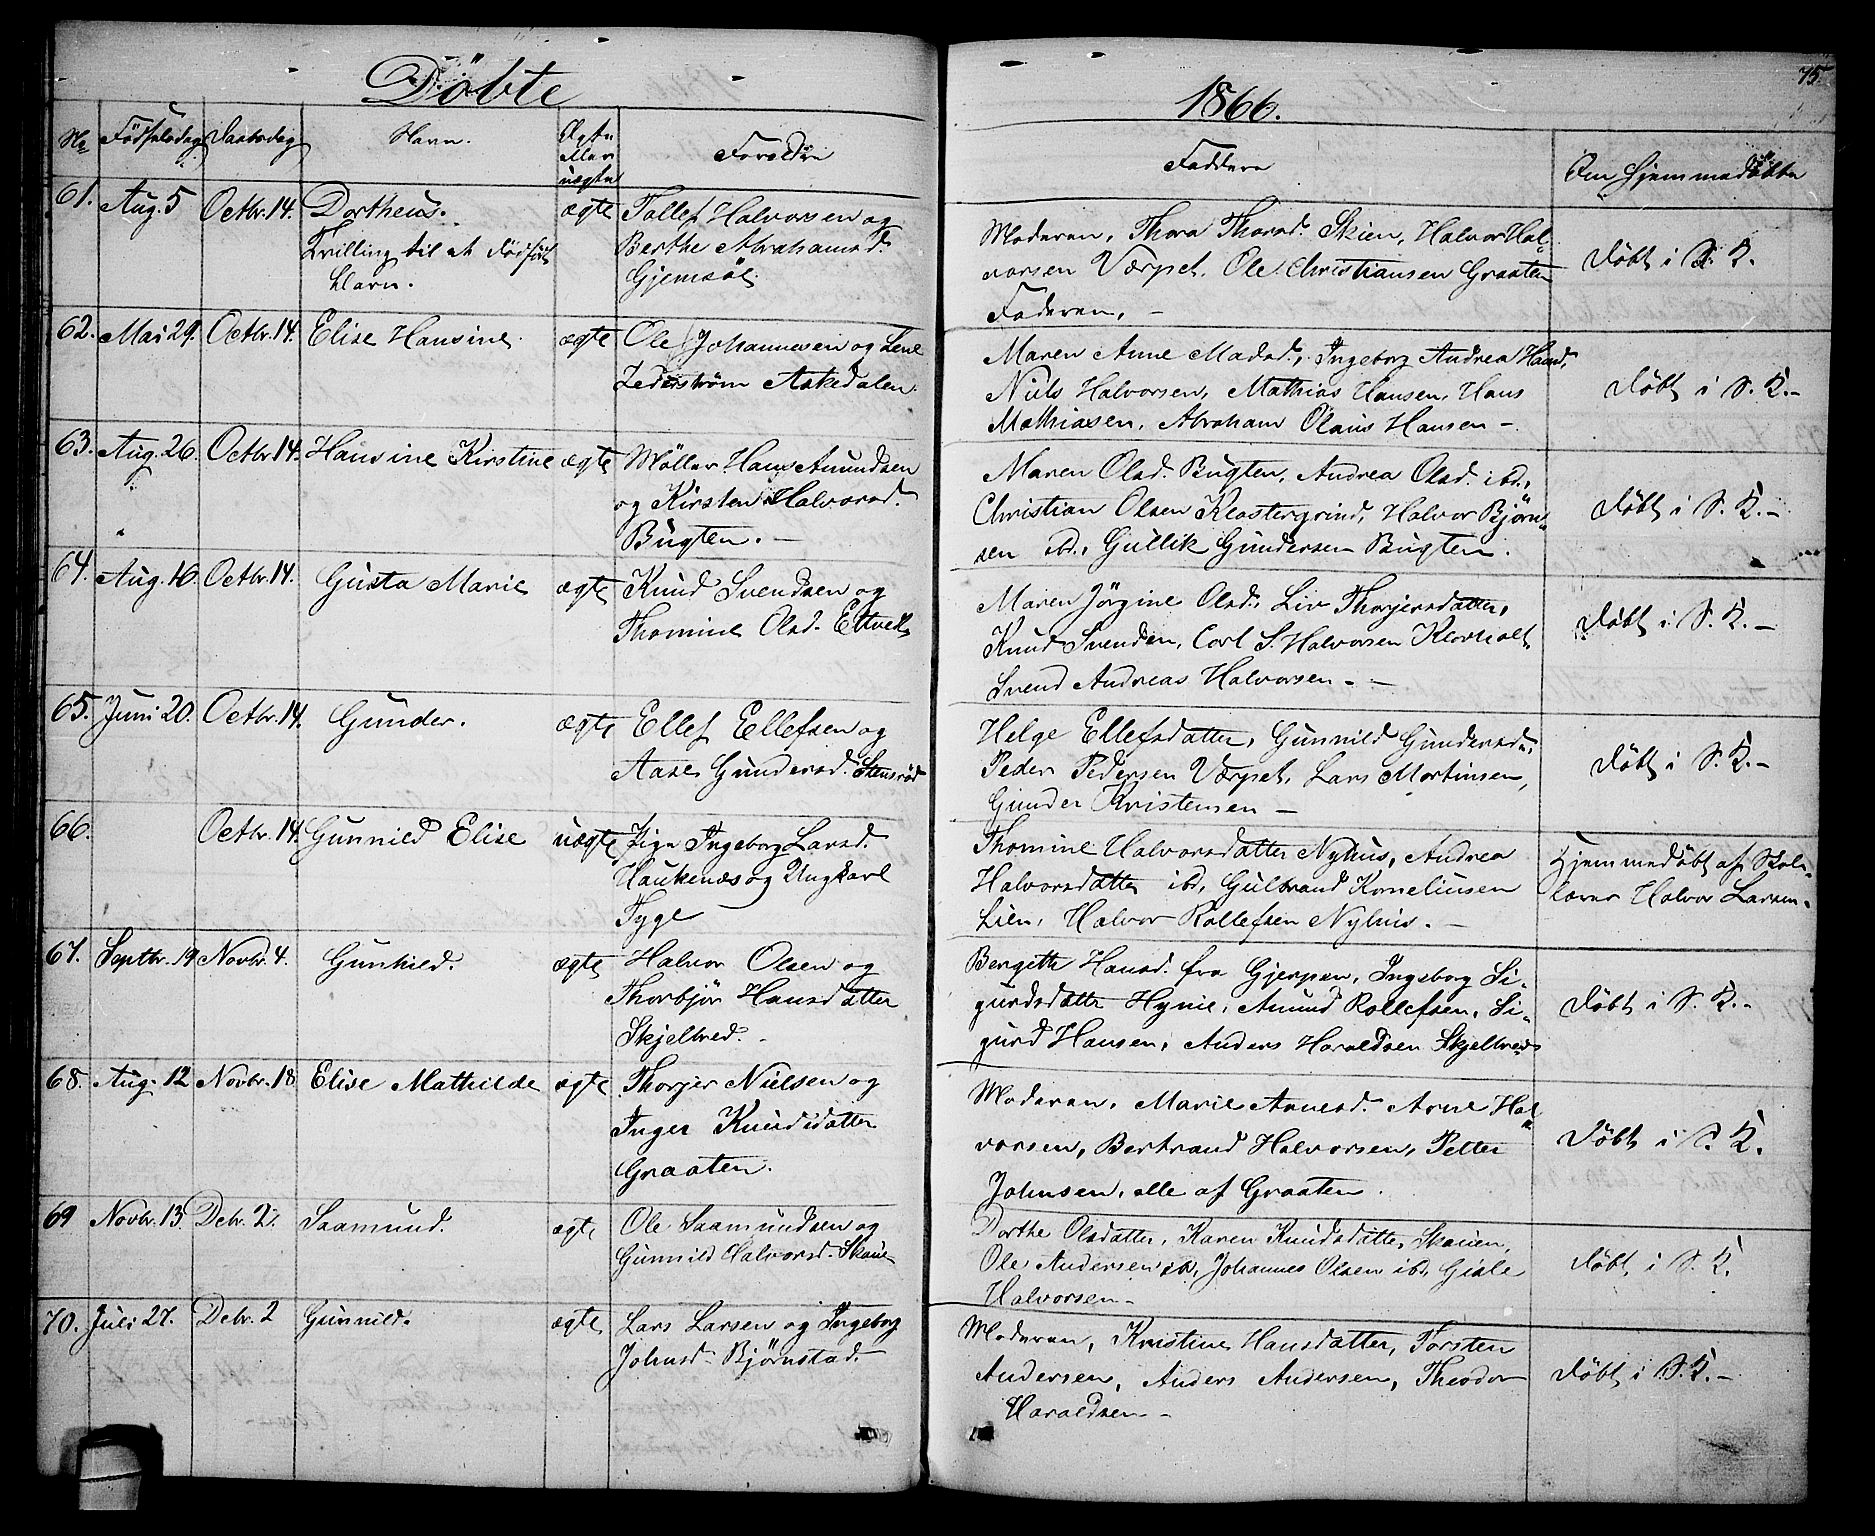 Döbte
No Fødselsdag Daabsdag Navn. Ægte eller uægte Foreldre
61. Aug. 5 Octbr. 14. Dortheus. ægte Tollef Halvorsen og
Tvilling til et dødfødt Berthe Abrahamsd.
Barn. Gjemsöe
62. Mai 29. Octbr. 14. Elise Hansine. ægte Ole Johannesen og Lene
Zederström Askedalen.
63. Aug. 26. Octbr 14. Hansine Kirstine ægte Møller Hans Amundsen
og Kirsten Halvorsd.
Bugten. —
64. Aug. 16. Octbr. 14. Gusta Marie ægte Knud Svendsen og
Thomine Olsd.
65. Juni 20. Octbr. 14. Gunder. ægte Ellef Ellefsen og
Aase Gundersd. Stensrød
66. Octbr. 14. Gunnild Elise uægte Pige Ingeborg Larsd.
Haukenæs og Ungkarl
Tyge
67. Septbr. 19 Novbr. 4. Gunhild. ægte Halvor Olsen og
Thorbjör Hansdatter
Skjelbred. -
68. Aug. 12 Novbr. 18 Elise Mathilde ægte Thorjer Nielsen og
Inger Knudsdatter
Graaten.
69 Novbr. 13. Debr. 2. Saamund. ægte Ole Saamundsen og
Gunnild Halvorsd. Skaue
70. Juli 27. Debr. 2 Gunnild. ægte Lars Larsen og Ingeborg
Johnsd. Bjørnstad.
75.
1866.
Faddere Om hjemmedøbte
Moderen, Thora Thorsd. Skien, Halvor Hal-
vorsen Værpet, Ole Christiansen Graaten Døbt i S. K.
Faderen, —
Maren Anne Madsd., Ingeborg Andrea Hansd,
Niels Halvorsen, Mathias Hansen, Hans Døbt i S. K. -
Mathiasen, Abraham Olaus Hansen -
Maren Olsd. Bugten, Andrea Olsd. ibd.,
Christian Olsen Klostergrind, Halvor Bjørn- Døbt i S. K. -
sen ibd., Gullik Gundersen Bugten.
Maren Jörgine Olsd., Liv Thorjersdatter,
Knud Svendsen, Carl S. Halvorsen Døbt i S. K. -
Svend Andreas Halvorsen. -
Helge Ellefsdatter, Gunnild Gundersd.,
Peder Pedersen Værpet, Lars Mortinsen, Døbt i S. K. -
Gunder Kristensen —
Thomine Halvorsdatter Nyhus, Andrea Hjemmedøbt af Skole-
Halvorsdatter ibd, Gulbrand Korneliusen lærer Halvor Larsen.
Lien, Halvor Rollefsen Nyhus. -
Bergitte Hansd. fra Gjerpen, Ingeborg Si-
gurdsdatter Hynie, Amund Rollefsen, Si- Døbt i S. K. -
gurd Hansen, Anders Haraldsen Skjelbred
Moderen, Marie Arnesd. Arne Hal-
vorsen, Bertrand Halvorsen, Petter Døbt i S. K.
Johnsen, alle af Graaten.
Dorthe Olsdatter, Karen Knudsdatter Skauen,
Ole Andersen ib., Johannes Olsen ibd, Gisle Døbt i S. K.
Halvorsen -
Moderen, Kristine Hansdatter, Torsten
Andersen, Anders Andersen, Theodor Døbt i S. K. -
Haraldsen -